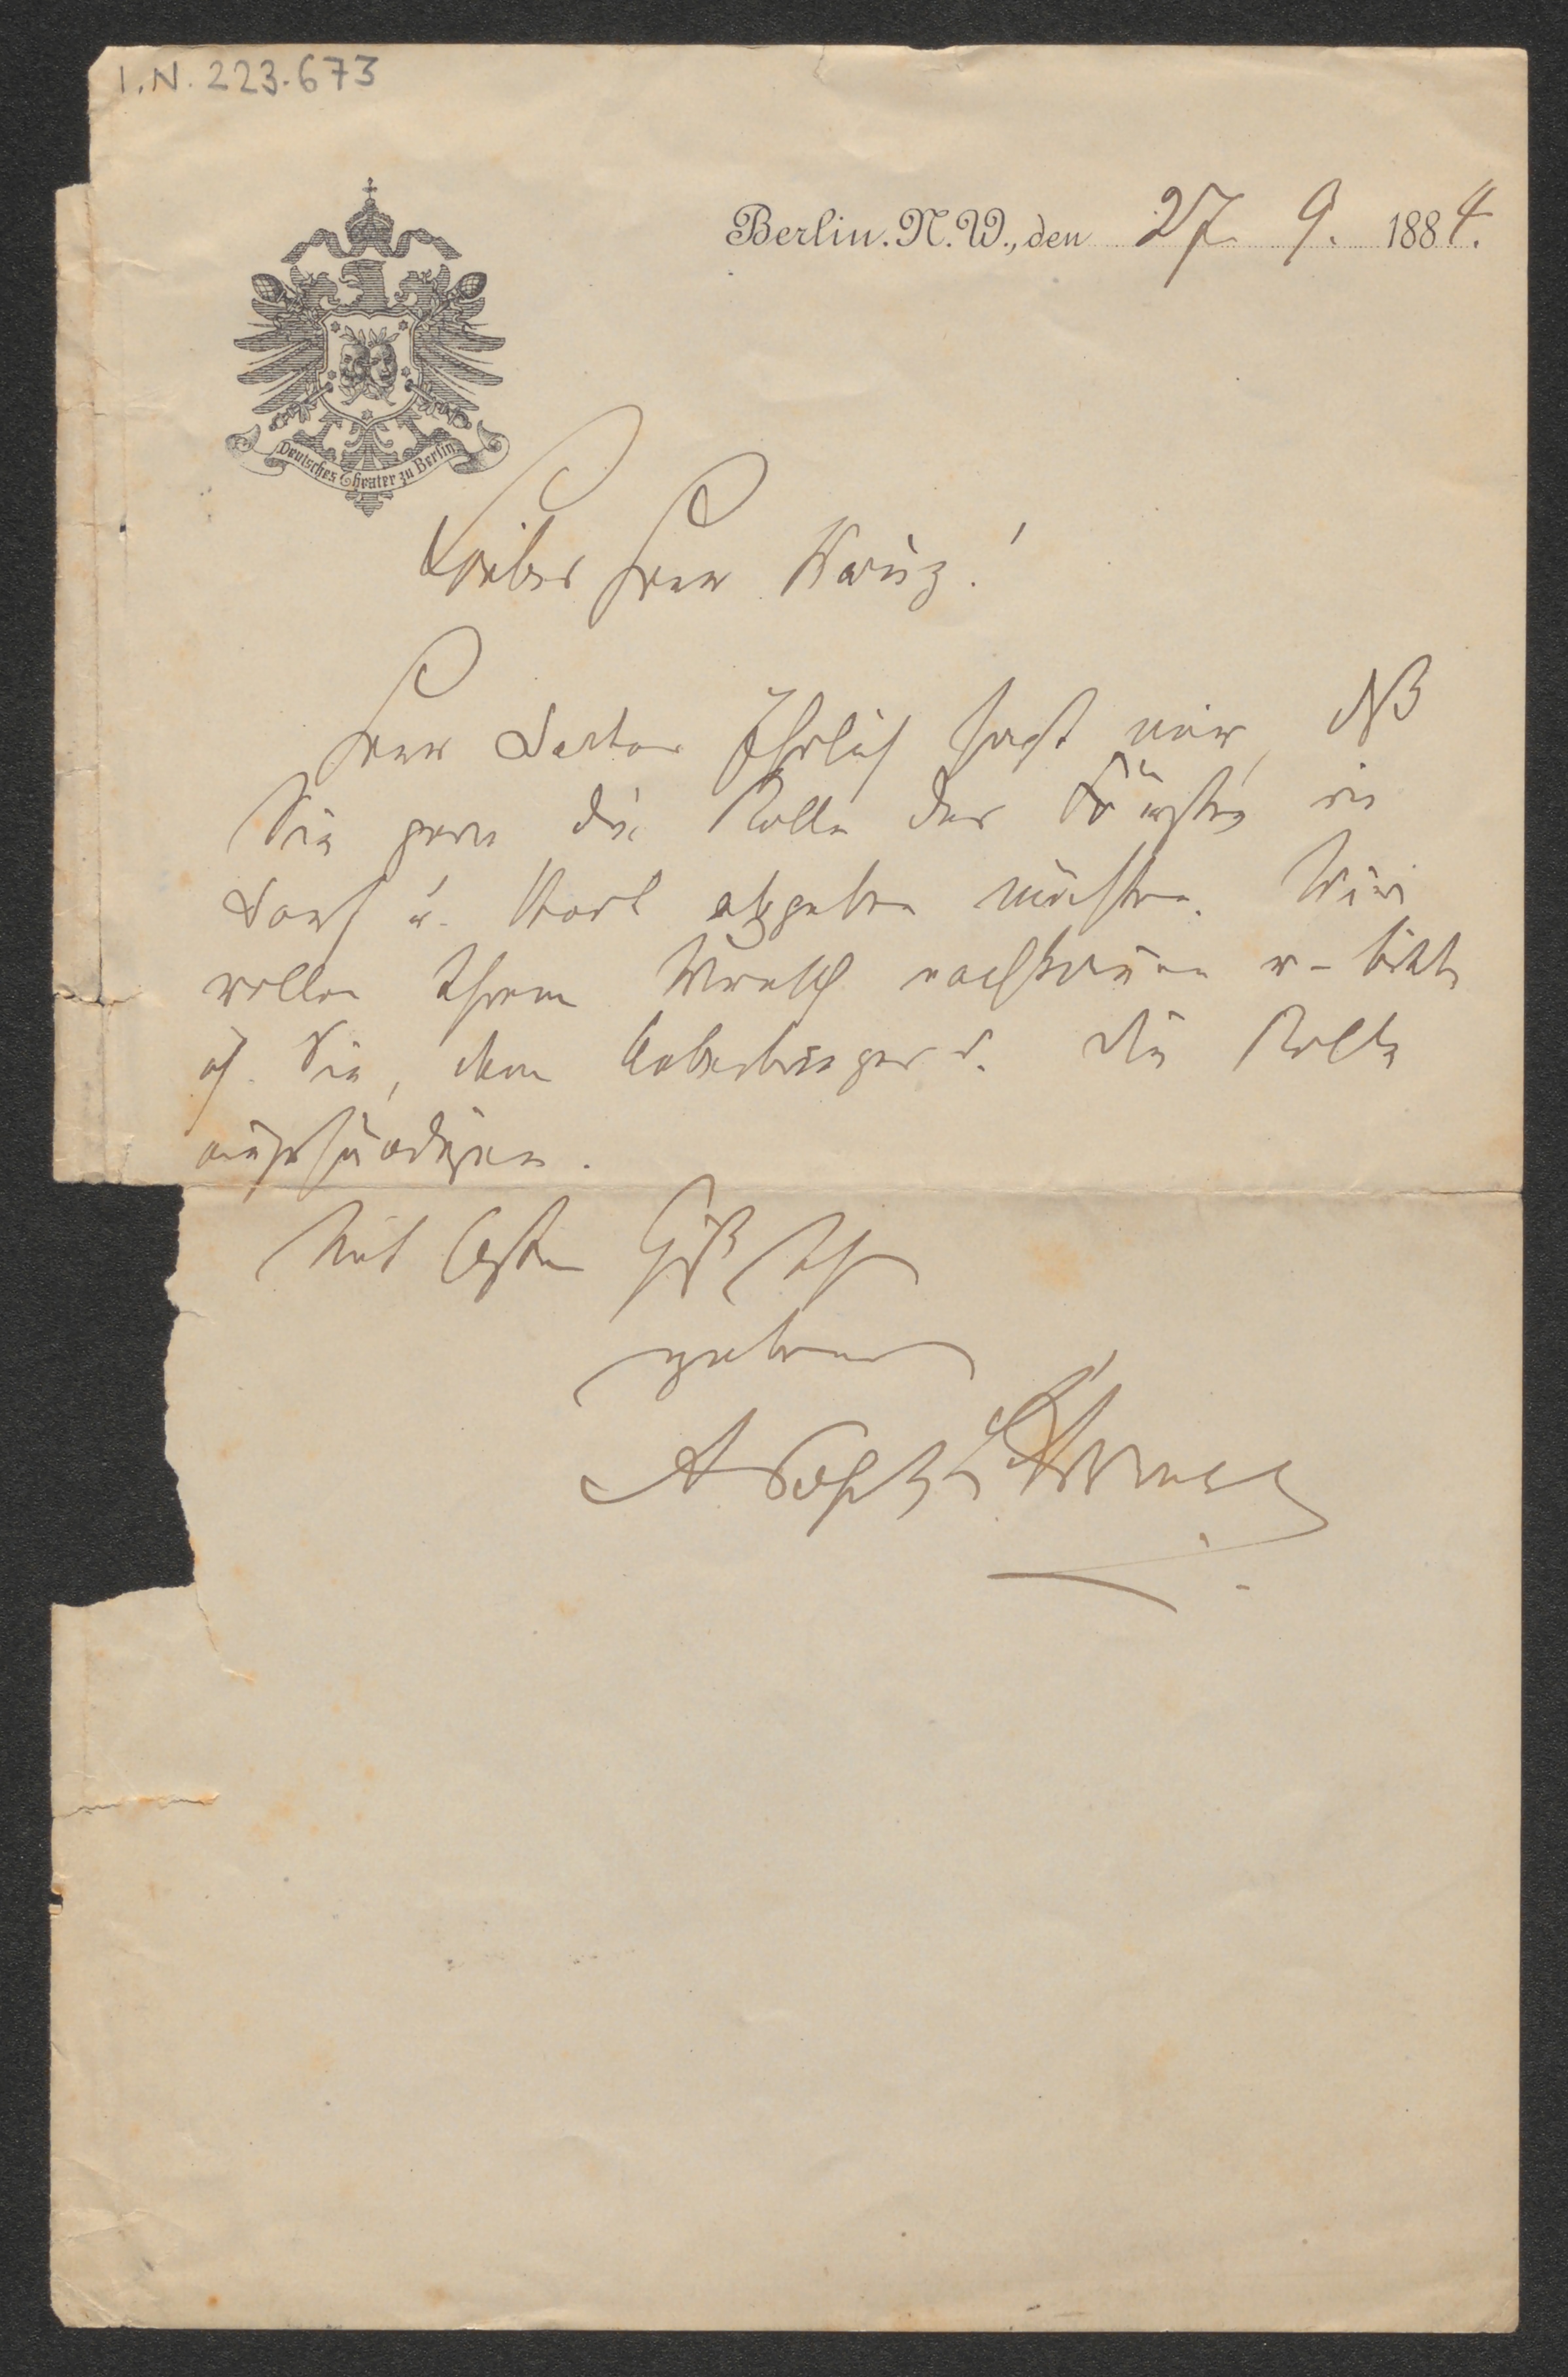 I.N. 223.673
Berlin. N. W., den 27. 9. 1884.
Deutsches Theater zu Berlin
Lieber Herr Kainz!
Herr Doctor Ehrlich sagt mir, daß
Sie gern die Rolle des in
Dorf u. Stadt abgeben möchten. Wir
wollen Ihrem Wunsch nachkommen u. bitte
ich Sie, dem Ueberbringer d. die Rolle
auszuhändigen.
Mit bestem Gruß Ihr
ergebener
Adolph L'Arronge